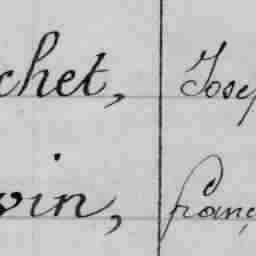 chet, Josep
vin, Franç